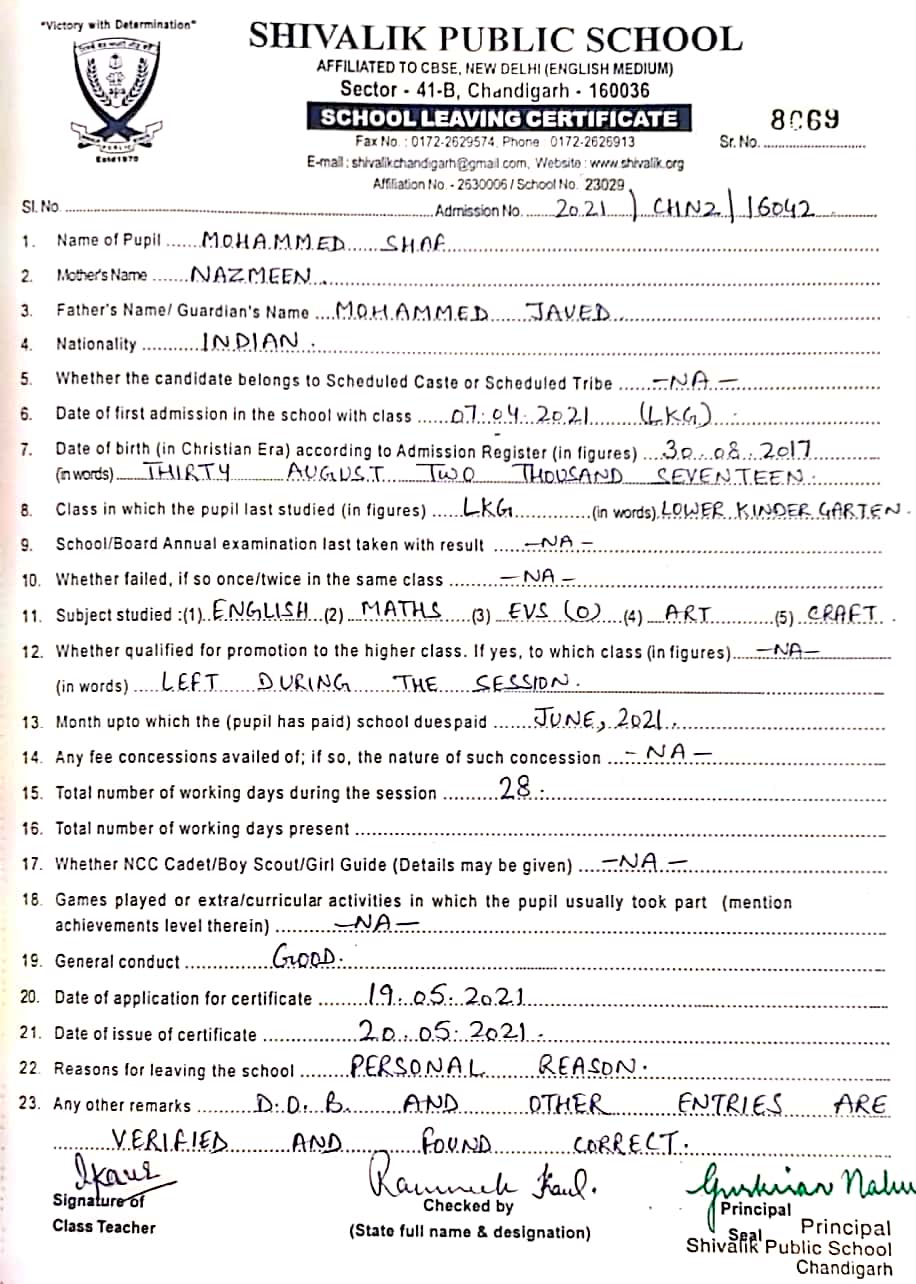 "Victory with Determination"
SHIVALIK PUBLIC SCHOOL
AFFILIATED TO CBSE, NEW DELHI (ENGLISH MEDIUM)
Sector - 41-B, Chandigarh - 160036
SCHOOL LEAVING CERTIFICATE
Fax No. : 0172-2629574, Phone : 0172-2626913
Sr. No. 8069
E-mail : shivalikchandigarh@gmail.com, Website : www.shivalik.org
Affiliation No. - 2630006 / School No. 23029
Estd 1970
Sl. No. Admission No. 2021 / CHN2 / 16042
1. Name of Pupil MOHAMMED SHAF
2. Mother's Name NAZMEEN.
3. Father's Name/ Guardian's Name MOHAMMED JAVED.
4. Nationality INDIAN.
5. Whether the candidate belongs to Scheduled Caste or Scheduled Tribe -NA-
6. Date of first admission in the school with class 07.04.2021 (LKG).
7. Date of birth (in Christian Era) according to Admission Register (in figures) 30.08.2017
(in words) THIRTY AUGUST TWO THOUSAND SEVENTEEN.
8. Class in which the pupil last studied (in figures) LKG (in words) LOWER KINDER GARTEN.
9. School/Board Annual examination last taken with result -NA-
10. Whether failed, if so once/twice in the same class -NA-
11. Subject studied :(1) ENGLISH (2) MATHS (3) EVS (O) (4) ART (5) CRAFT.
12. Whether qualified for promotion to the higher class. If yes, to which class (in figures) -NA-
(in words) LEFT DURING THE SESSION.
13. Month upto which the (pupil has paid) school duespaid JUNE, 2021.
14. Any fee concessions availed of; if so, the nature of such concession -NA-
15. Total number of working days during the session 28.
16. Total number of working days present
17. Whether NCC Cadet/Boy Scout/Girl Guide (Details may be given) -NA-
18. Games played or extra/curricular activities in which the pupil usually took part (mention
achievements level therein) -NA-
19. General conduct GOOD.
20. Date of application for certificate 19.05.2021
21. Date of issue of certificate 20.05.2021.
22. Reasons for leaving the school PERSONAL REASON.
23. Any other remarks D.O.B. AND OTHER ENTRIES ARE
VERIFIED AND FOUND CORRECT.
Signature of
Class Teacher
Checked by
(State full name & designation)
Principal
Seal
Principal
Shivalik Public School
Chandigarh